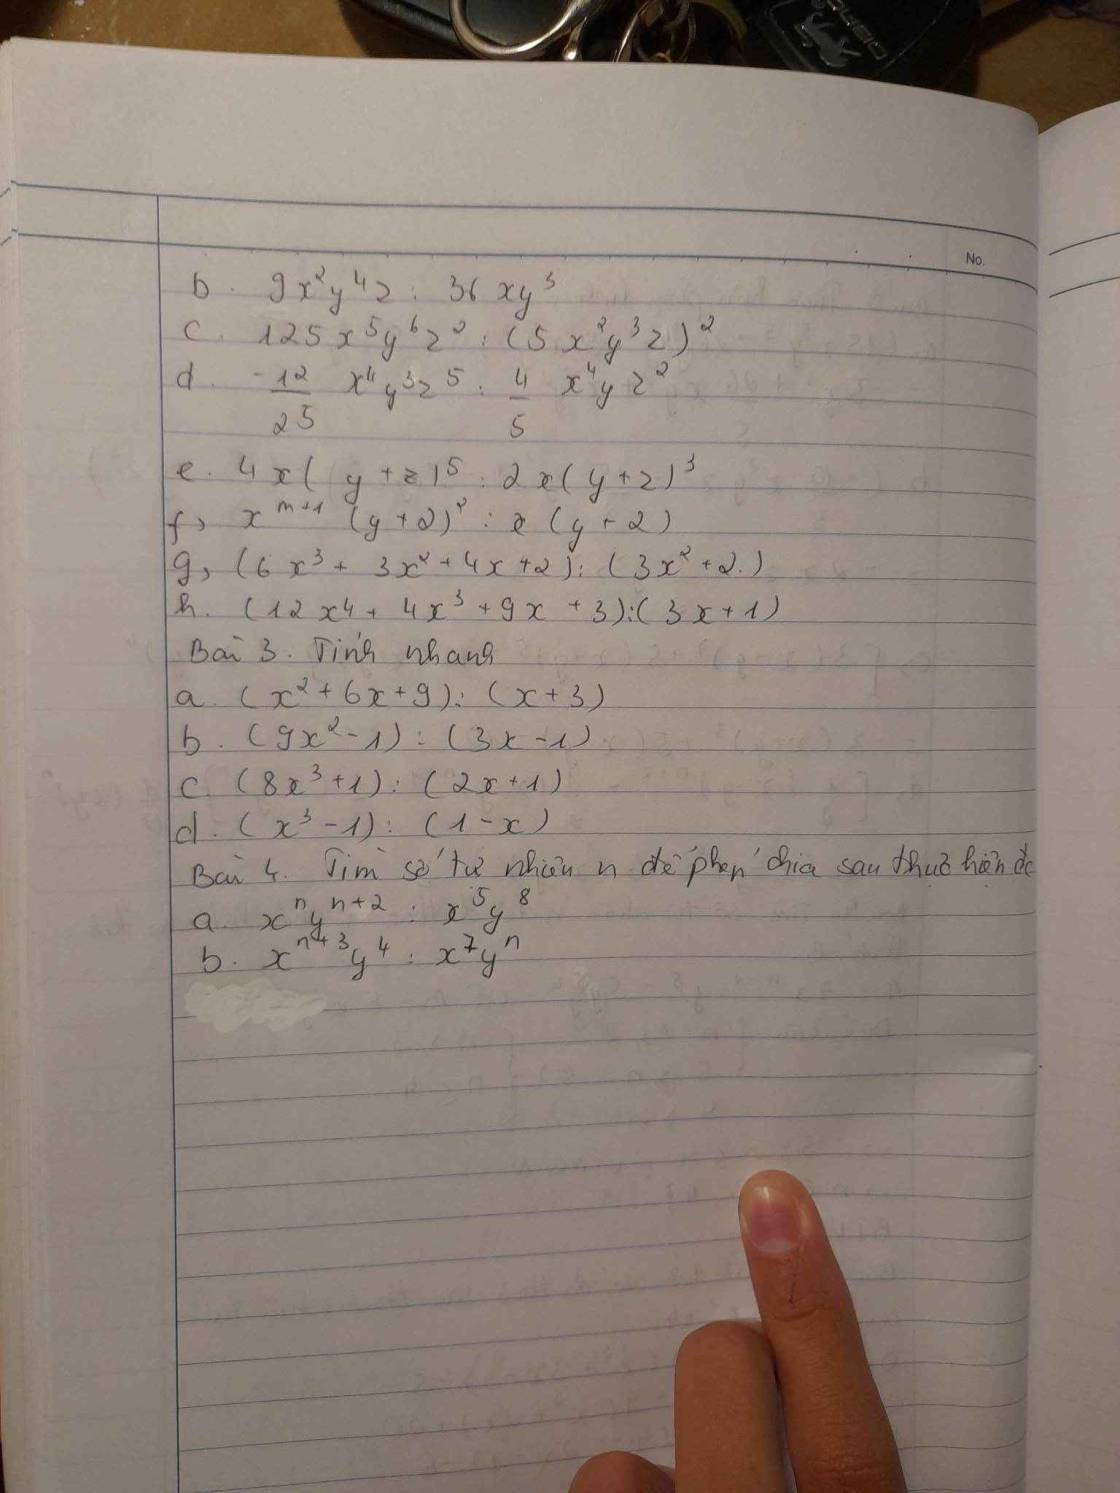 No.
b. 9x²y⁴z : 36xy³
c. 125x⁵y⁶z² : (5x²y³z)²
d. -12/25 x⁴y³z⁵ : 4/5 x⁴yz²
e. 4x(y+z)⁵ : 2x(y+z)³
f, xᵐ⁺¹(y+2)² : x(y+2)
g, (6x³+3x²+4x+2) : (3x²+2)
h. (12x⁴+4x³+9x+3) : (3x+1)
Bài 3. Tính nhanh
a. (x²+6x+9) : (x+3)
b. (9x²-1) : (3x-1)
c. (8x³+1) : (2x+1)
d. (x³-1) : (1-x)
Bài 4. Tìm số tự nhiên n để phép chia sau thực hiện đc
a. xⁿyⁿ⁺² : x⁵y⁸
b. xⁿ⁺³y⁴ : x⁷yⁿ